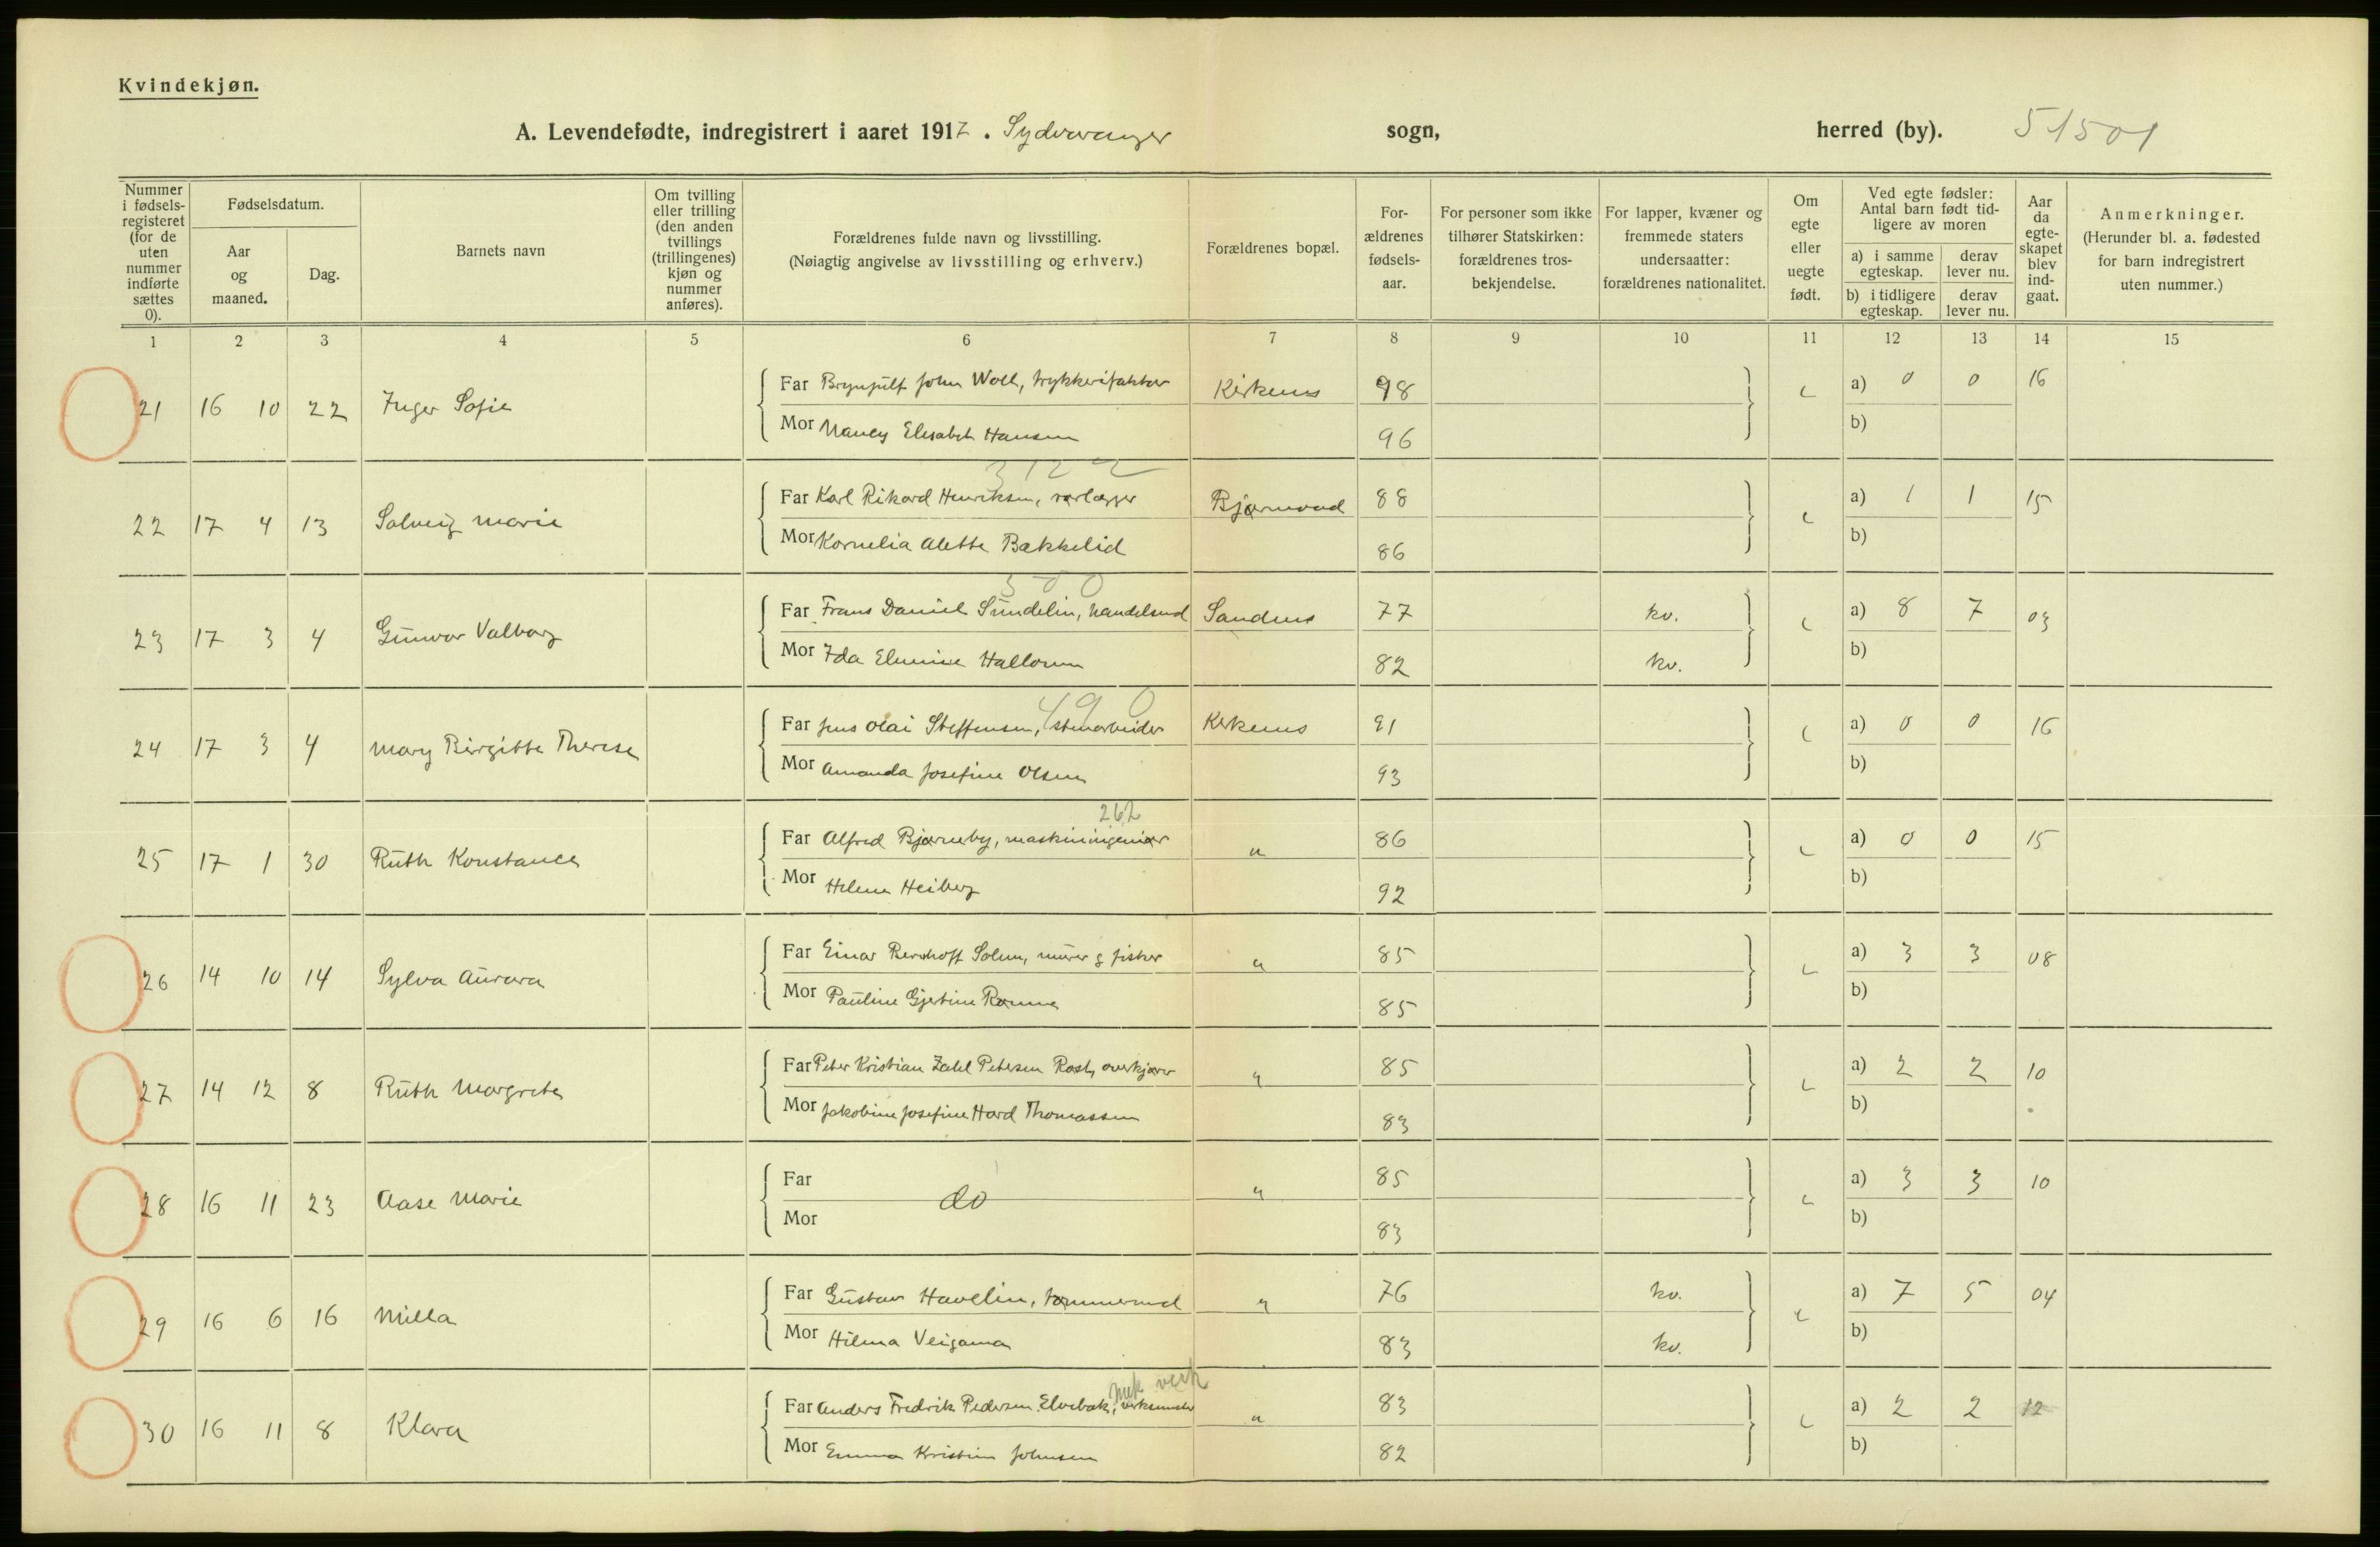 Kvindekjøn.
A. Levendefødte, indregistrert i aaret 1917. Sydvaranger sogn, herred (by). 51501
Nummer i fødsels-registeret (for de uten nummer indførte sættes 0).
Fødselsdatum.
Aar og maaned.
Dag.
Barnets navn
Om tvilling eller trilling (den anden tvillings (trillingenes) kjøn og nummer anføres).
Forældrenes fulde navn og livsstilling.
(Nøiagtig angivelse av livsstilling og erhverv.)
Forældrenes bopæl.
For-ældrenes fødsels-aar.
For personer som ikke tilhører Statskirken: forældrenes tros-bekjendelse.
For lapper, kvæner og fremmede staters undersaatter: forældrenes nationalitet.
Om egte eller uegte født.
Ved egte fødsler: Antal barn født tid-ligere av moren
a) i samme egteskap. derav lever nu.
b) i tidligere egteskap. derav lever nu.
Aar da egte-skapet blev ind-gaat.
Anmerkninger.
(Herunder bl. a. fødested for barn indregistrert uten nummer.)
1 2 3 4 5 6 7 8 9 10 11 12 13 14 15
21 16 10 22 Inger Sofie Far Brynjulf John Woll, trykkerifaktor Kirkenes 98 e a) 0 0 16
Mor Nancy Elisabeth Hansen 96 b)
312 2
22 17 4 13 Solveig Marie Far Karl Rikard Henriksen, rørlægger Bjørnevand 88 e a) 1 1 15
Mor Kornelia Alette Bækkelid 86 b)
380
23 17 3 4 Gunvor Valborg Far Frans Daniel Sundelin, handelsmd Sandnes 77 kv. e a) 8 7 03
Mor Ida Elmine Hallonen 82 kv. b)
490
24 17 3 4 Mary Birgitte Therese Far Jens Olai Steffensen, stenarbeider Kirkenes 91 e a) 0 0 16
Mor Amanda Josefine Olsen 93 b)
262
25 17 1 30 Ruth Konstance Far Alfred Bjørneby, maskiningeniør " 86 e a) 0 0 15
Mor Helene Heiberg 92 b)
26 14 10 14 Sylva Aurora Far Einar Bernhoft Solem, murer g fisker " 85 e a) 3 3 08
Mor Pauline Gjertine Rønne 85 b)
27 14 12 8 Ruth Margrete Far Peter Kristian Zahl Petersen Røst, overkjører " 85 e a) 2 2 10
Mor Jakobine Josefine Hard Thomassen 83 b)
28 16 11 23 Aase Marie Far do " 85 e a) 3 3 10
Mor 83 b)
29 16 6 16 Milla Far Gustav Havelin, tømmermd " 76 kv. e a) 7 5 04
Mor Hilma Veigama 83 kv. b)
mek verk
30 16 11 8 Klara Far Anders Fredrik Pedersen Elvebak, verksmester " 83 e a) 2 2 12
Mor Emma Kristine Johnsen 82 b)